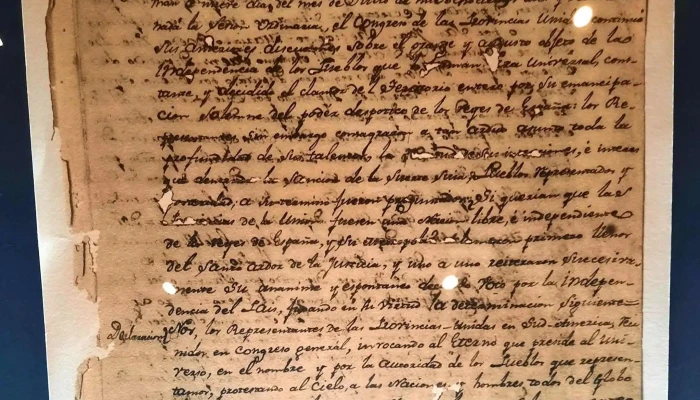 nada la Sesion Ordinaria, el Congreso de las Provincias Unidas continuó
sus anteriores discusiones sobre el grande y augusto objeto de la
Independencia de los Pueblos que la forman. Era universal, cons-
tante, y decidido el clamor del Territorio entero por su emancipa-
cion solemne del poder despotico de los Reyes de España; los Re-
presentantes, sin embargo consagraron a tan arduo asunto toda la
profundidad de sus talentos, la de sus intenciones, é interes
que demanda la sancion de la Suerte suya, Pueblos representados y
a su termino fueron preguntados: Si querian que las
Provincias de la Union fuesen una Nacion libre, é independiente
de los Reyes de España, y su primero llenos
del Santo ardor de la Justicia, y uno a uno reiteraron sucesiva-
mente su unanime y espontaneo voto por la indepen-
dencia del Pais, fixando en su virtud la determinacion siguiente
Declaracion Nos, los Representantes de las Provincias Unidas en Sud America, reu-
nidos en Congreso general, invocando al Eterno que preside al Uni-
verso, en el nombre y por la Autoridad de los Pueblos que represen-
tamos, protestando al Cielo, a las Naciones y hombres todos del Globo